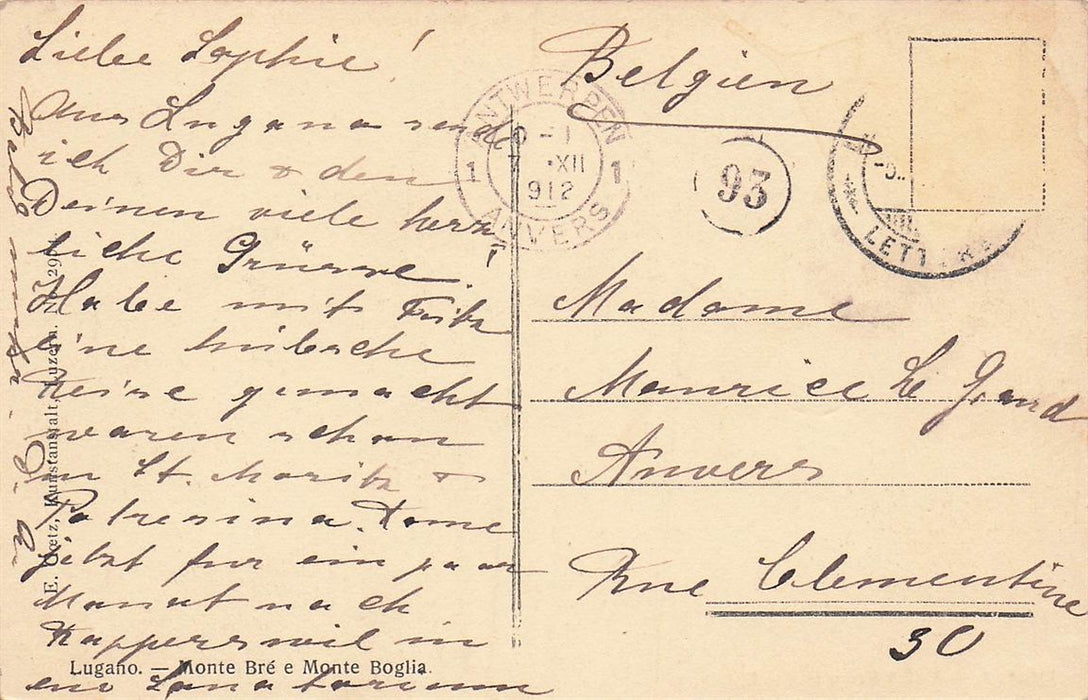 Liebe Sophie!
Aus Lugano sende
ich Dir & den
Deinen viele herz
liche Grüsse!
Habe mit Fritz
eine hübsche
Reise gemacht
waren schon
in St. Moritz &
Potresina. Kome
jetzt für ein paar
Monat nach
Rapperswil in
ein Sanatorium
Belgien
Madame
Maurice Le Grand
Anvers
Rue Clementine
30
ANTWERPEN
1 7 XII 1
912
ANVERS
93
LETTERE
E. Goetz, Kunstanstalt, Luzern.
Lugano. — Monte Brè e Monte Boglia.